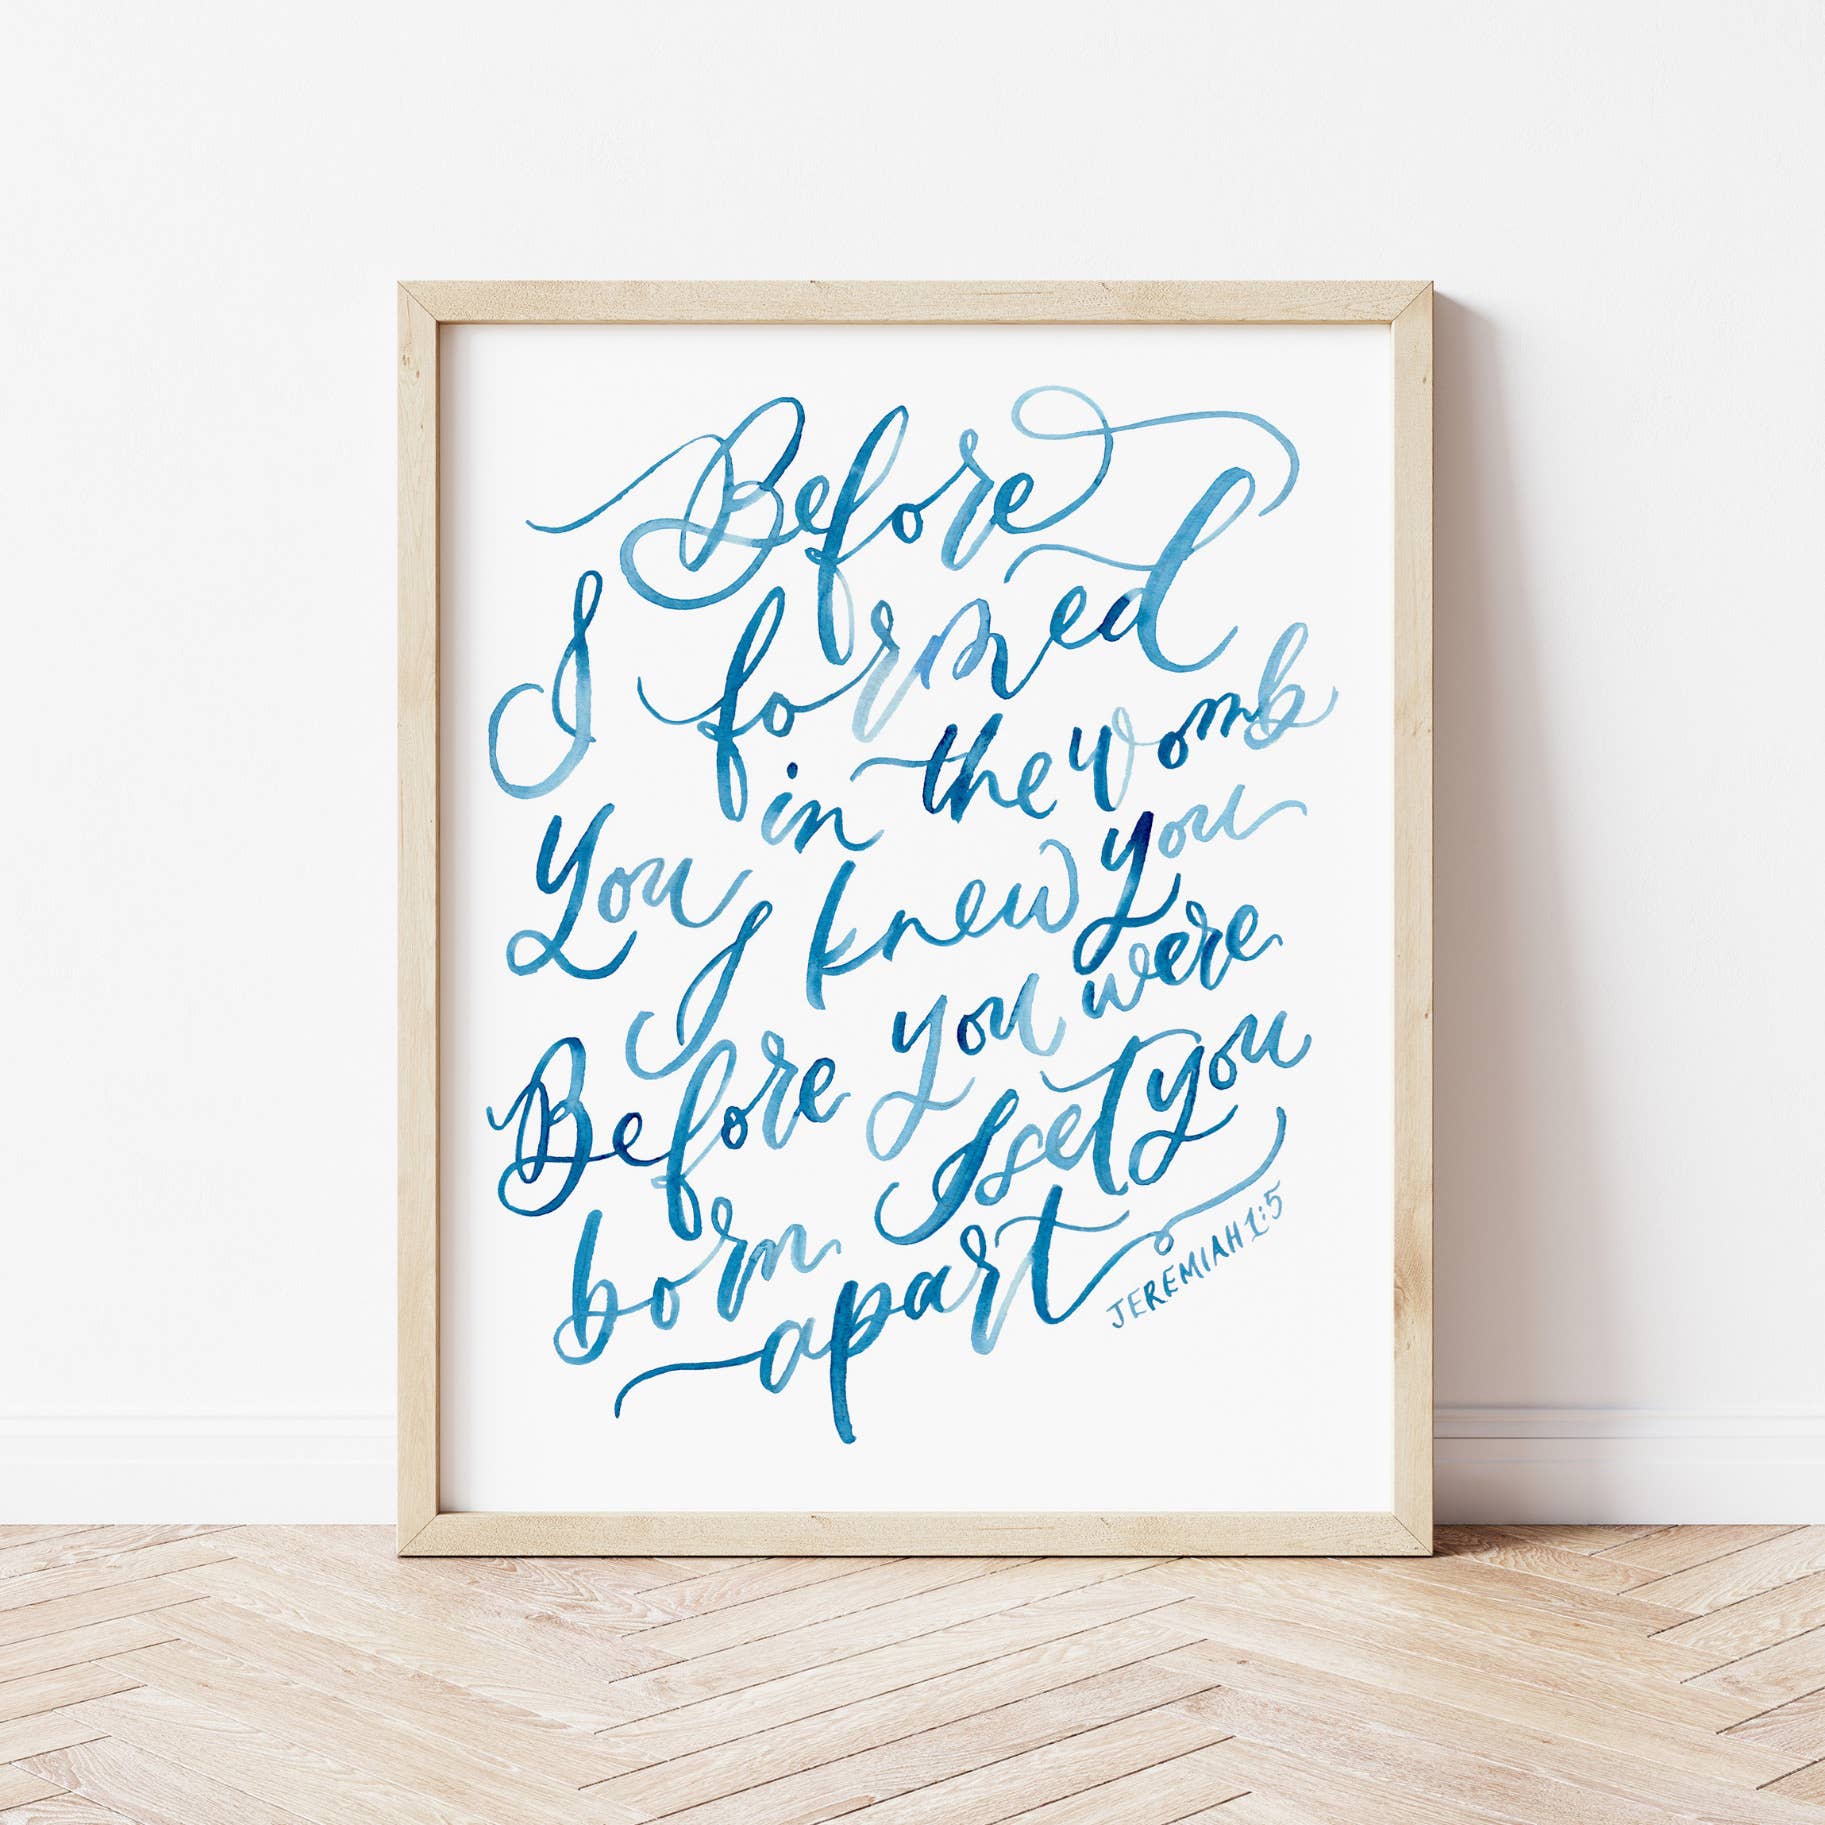 Before
I formed
You in the womb
I knew you
Before you were
born I set you
apart
JEREMIAH 1:5